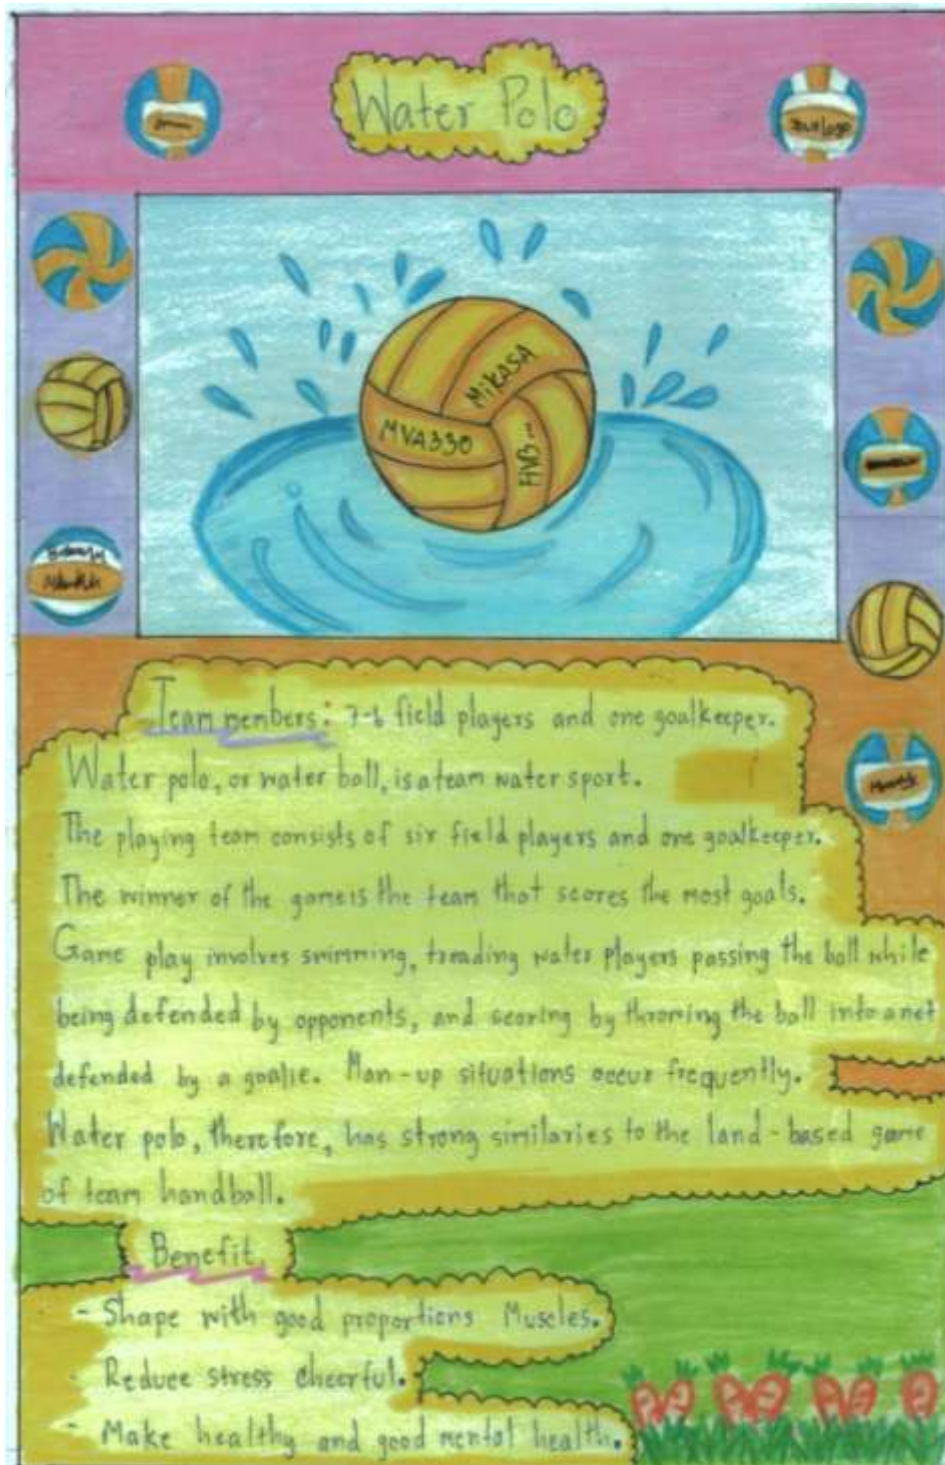 Water Polo
Your logo
MiKASA
MVA330
FiVB...
Team members: 7-6 field players and one goalkeeper.
Water polo, or water ball, is a team water sport.
The playing team consists of six field players and one goalkeeper.
The winner of the game is the team that scores the most goals.
Game play involves swimming, treading water players passing the ball while
being defended by opponents, and scoring by throwing the ball into a net
defended by a goalie. Man-up situations occur frequently.
Water polo, therefore, has strong similaries to the land-based game
of team handball.
Benefit
- Shape with good proportions Muscles.
- Reduce stress cheerful.
- Make healthy and good mental health.